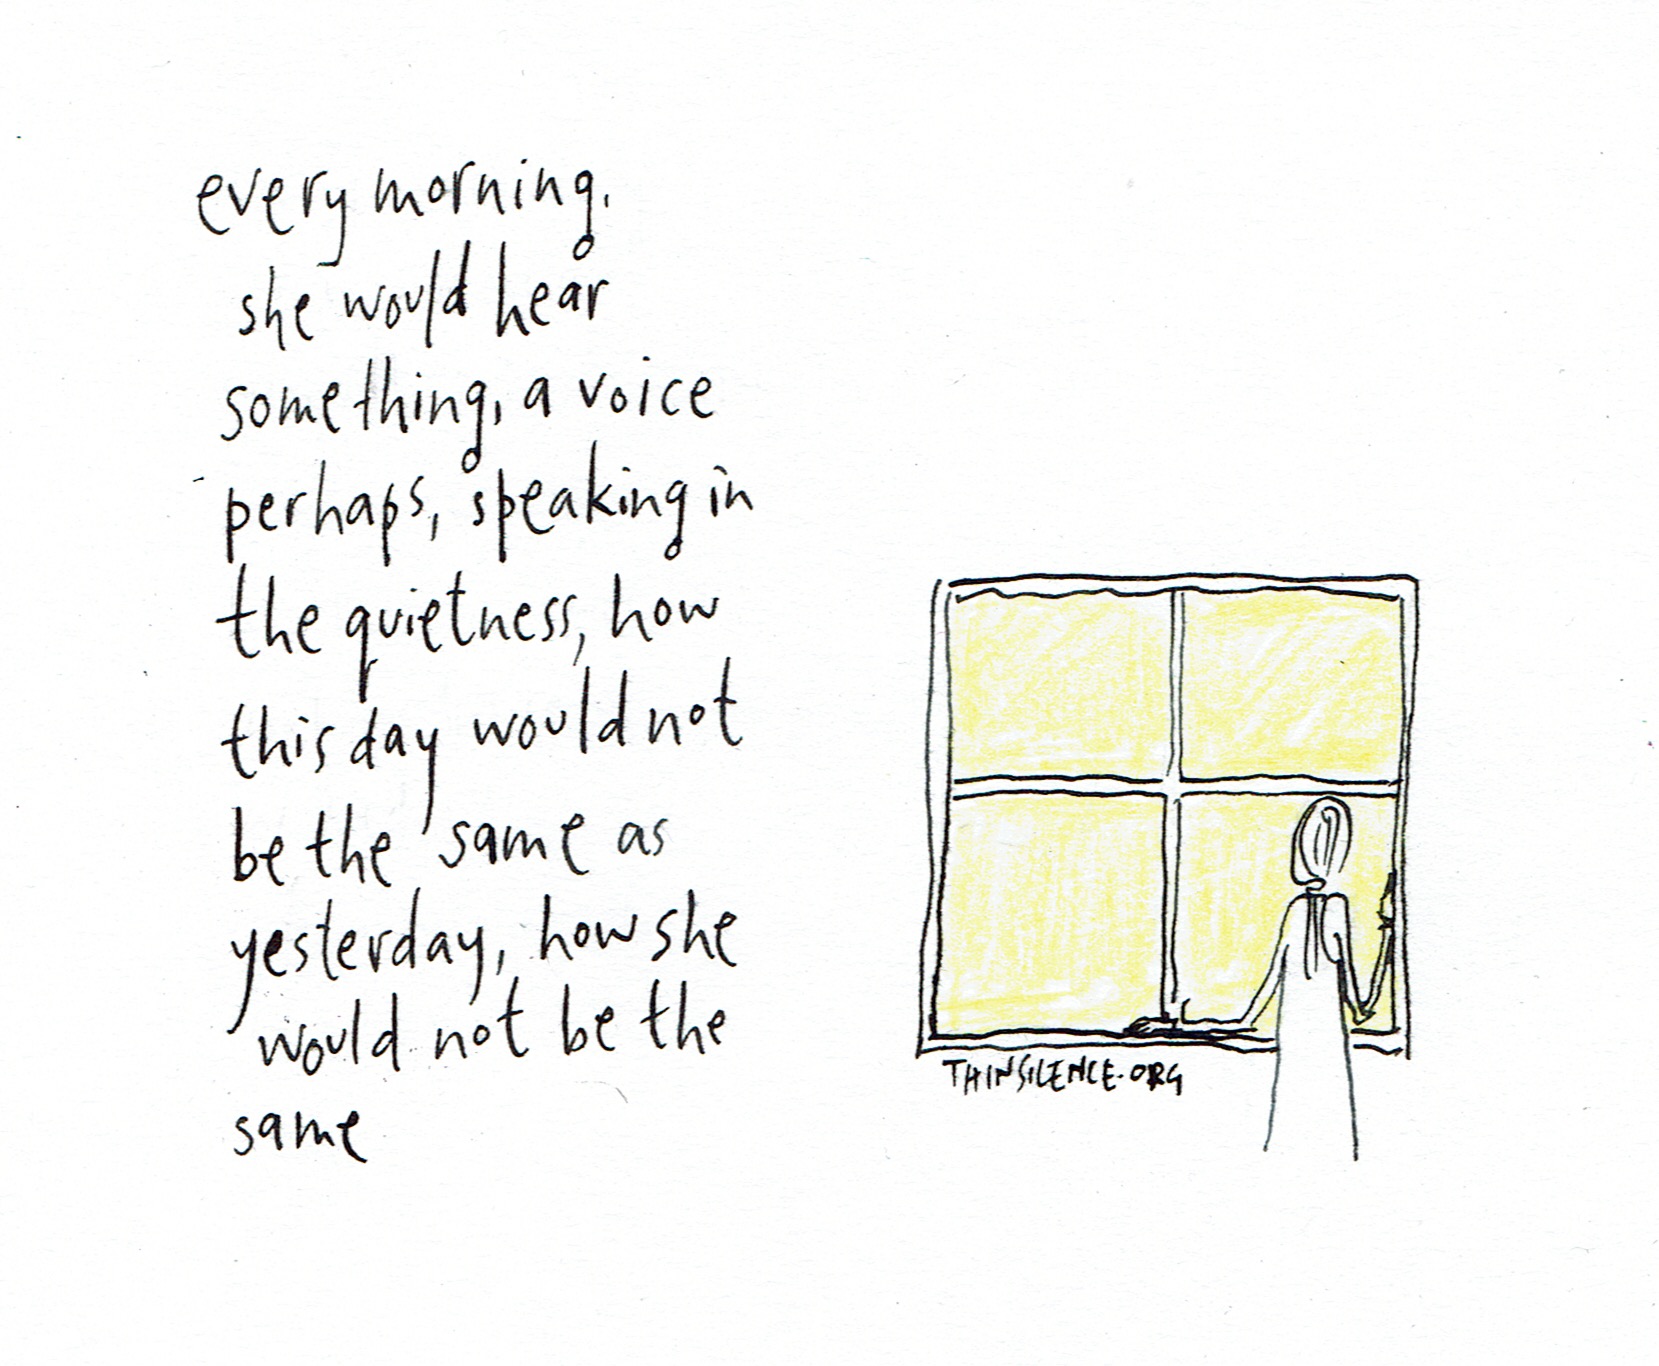 every morning.
she would hear
something, a voice
perhaps, speaking in
the quietness, how
this day would not
be the same as
yesterday, how she
would not be the
same
THINSILENCE.ORG